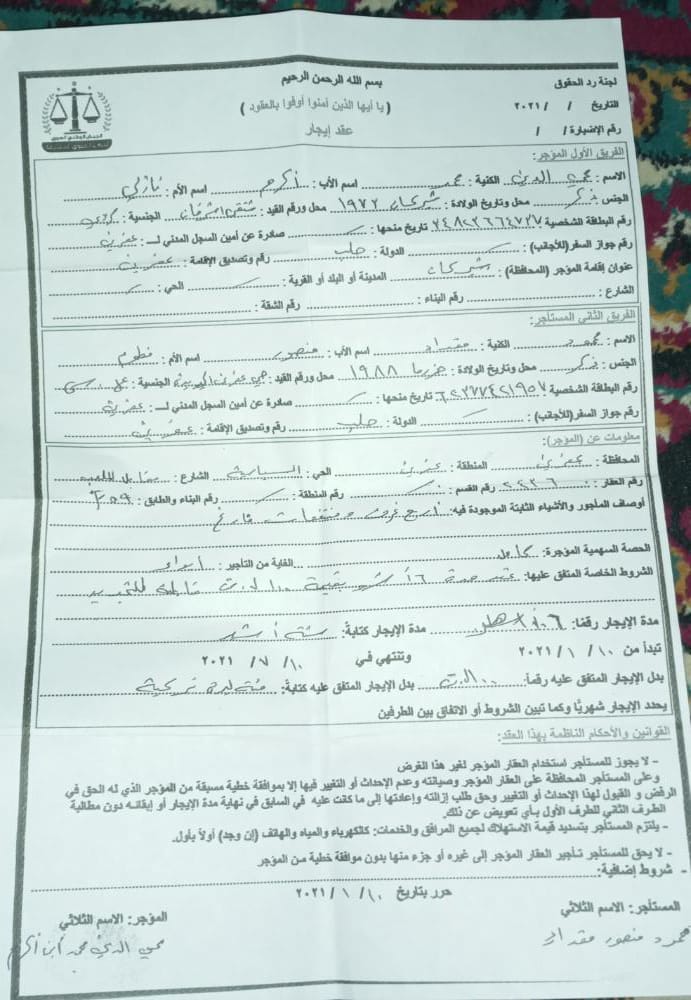 بسم الله الرحمن الرحيم
( يا أيها الذين آمنوا أوفوا بالعقود )
عقد إيجار
لجنة رد الحقوق
التاريخ / / ٢٠٢١
رقم الإضبارة / /
الفريق الأول المؤجر:
الاسم : محي الدين الكنية : محمد اسم الأب : أكرم اسم الأم : نازلي
الجنس : ذكر محل وتاريخ الولادة : شيركان ١٩٧٢ محل ورقم القيد : الجنسية : كردي
رقم البطاقة الشخصية تاريخ منحها : صادرة عن أمين السجل المدني لـ : عفرين
رقم جواز السفر (للأجانب) : الدولة : حلب رقم وتصديق الإقامة : عفرين
عنوان إقامة المؤجر (المحافظة) : شيركان المدينة أو البلد أو القرية : الحي :
الشارع : رقم البناء : رقم الشقة :
الفريق الثاني المستأجر:
الاسم : محمود الكنية : مقداد اسم الأب : منصور اسم الأم : فطوم
الجنس : ذكر محل وتاريخ الولادة : ١٩٨٨ محل ورقم القيد : الجنسية :
رقم البطاقة الشخصية تاريخ منحها : صادرة عن أمين السجل المدني لـ : عفرين
رقم جواز السفر (للأجانب) : الدولة : حلب رقم وتصديق الإقامة : عفرين
معلومات عن (المؤجر):
المحافظة : عفرين المنطقة : عفرين الحي : الشارع : مقابل الملعب
رقم العقار : رقم القسم : رقم المنطقة : رقم البناء والطابق :
أوصاف المأجور والأشياء الثابتة الموجودة فيه : اربع غرف ومنتفعات فارغ
الحصة السهمية المؤجرة : كامل الغاية من التأجير : ايواء
الشروط الخاصة المتفق عليها : ٦ أشهر بقيمة ١٠٠ ل.ت قابلة للتجديد
مدة الإيجار رقما: ٦ أشهر مدة الإيجار كتابة: ستة أشهر
تبدأ من ١٠ / ١ / ٢٠٢١ وتنتهي في ١٠ / ٧ / ٢٠٢١
بدل الإيجار المتفق عليه رقماً: ١٠٠ ل.ت بدل الإيجار المتفق عليه كتابة: مئة ليرة تركية
يحدد الإيجار شهريًا وكما تبين الشروط أو الاتفاق بين الطرفين
القوانين والأحكام الناظمة بهذا العقد:
- لا يجوز للمستأجر استخدام العقار المؤجر لغير هذا الغرض
وعلى المستأجر المحافظة على العقار المؤجر وصيانته وعدم الإحداث أو التغيير فيها إلا بموافقة خطية مسبقة من المؤجر الذي له الحق في
الرفض و القبول لهذا الإحداث أو التغيير وحق طلب إزالته وإعادتها إلى ما كانت عليه في السابق في نهاية مدة الإيجار أو إبقائه دون مطالبة
الطرف الثاني للطرف الأول بأي تعويض عن ذلك.
- يلتزم المستأجر بتسديد قيمة الاستهلاك لجميع المرافق والخدمات: كالكهرباء والمياه والهاتف (إن وجد) أولاً بأول.
- لا يحق للمستأجر تأجير العقار المؤجر إلى غيره أو جزء منها بدون موافقة خطية من المؤجر
- شروط إضافية:
حرر بتاريخ ١٠ / ١ / ٢٠٢١
المستأجر: الاسم الثلاثي
المؤجر: الاسم الثلاثي
محمود منصور مقداد
محي الدين محمد ابن أكرم